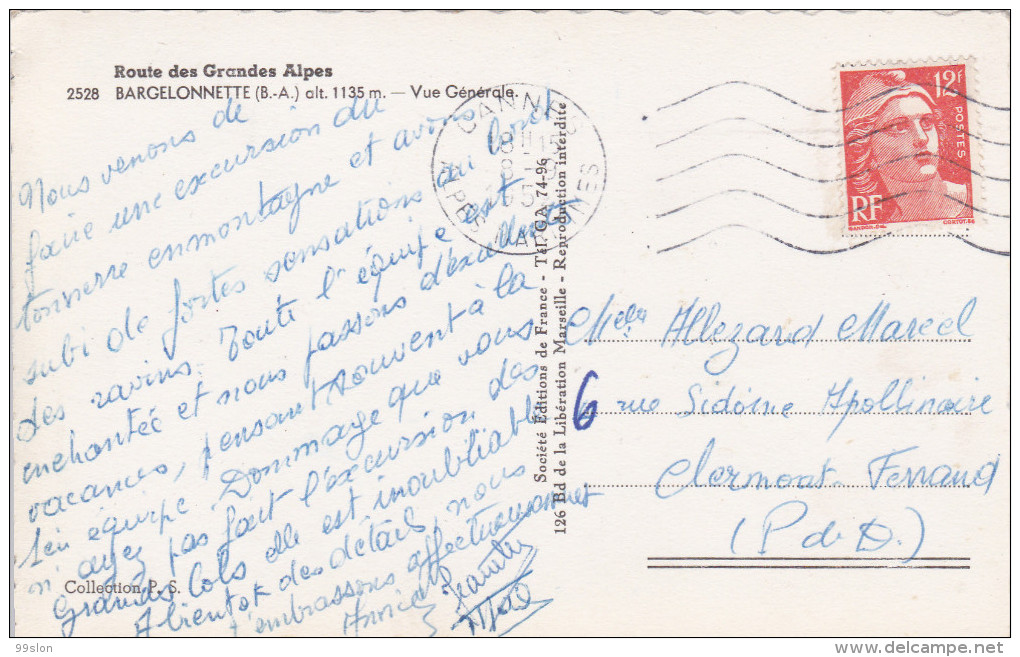 Route des Grandes Alpes
2528 BARGELONNETTE (B.-A.) alt. 1135 m. — Vue Générale.
Nous venons de
faire une excursion du
tonnerre en montagne et avons
subi de fortes sensations au bord
des ravins. Toute l'équipe est
enchantée et nous passons d'excellentes
vacances, pensant souvent à la
équipe. Dommage que vous
n'ayez pas fait l'excursion des
Grands Cols elle est inoubliable
A bientôt des détails, nous
embrassons affectueusement
Annie
Collection P. S.
CANNES
ALPES MARITIMES
Société Éditions de France - Tél. GA. 74-96
126 Bd de la Libération Marseille - Reproduction interdite
12F
POSTES
RF
GANDON.DEL.
CORTOT.SC
Allezard Marcel
6 rue Sidoine Apollinaire
Clermont-Ferrand
(P de D.)
99slon
www.delcampe.net